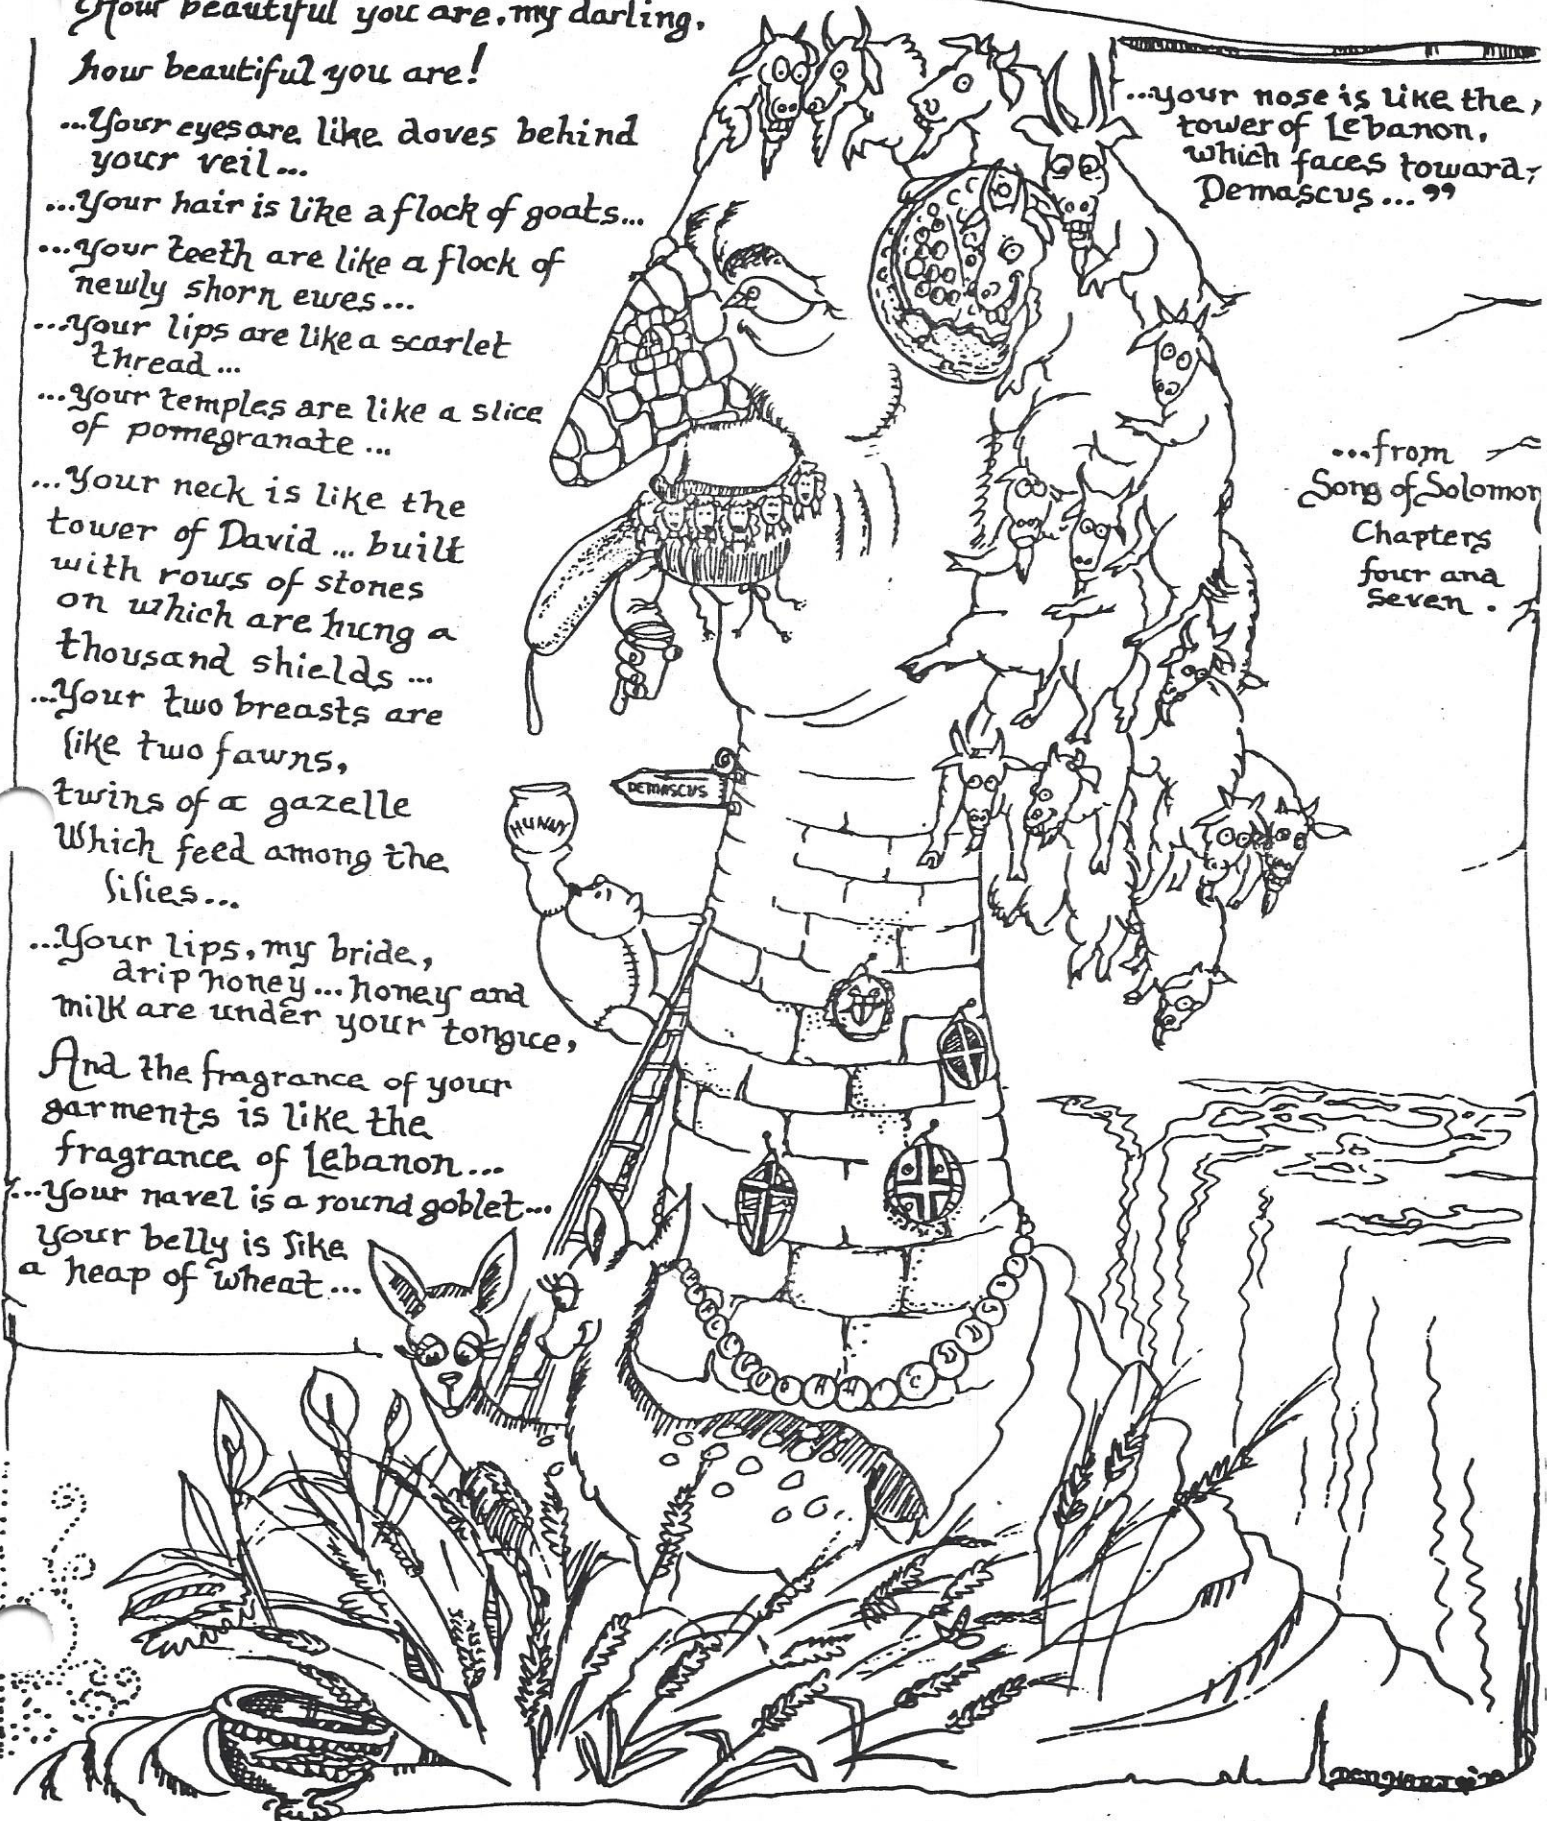 How beautiful you are, my darling,
how beautiful you are!
...Your eyes are like doves behind
your veil...
...Your hair is like a flock of goats...
...your teeth are like a flock of
newly shorn ewes...
...your lips are like a scarlet
thread...
...your temples are like a slice
of pomegranate...
...Your neck is like the
tower of David... built
with rows of stones
on which are hung a
thousand shields...
...Your two breasts are
like two fawns,
twins of a gazelle
Which feed among the
lilies...
...Your lips, my bride,
drip honey... honey and
milk are under your tongue,
And the fragrance of your
garments is like the
fragrance of Lebanon...
...Your navel is a round goblet...
your belly is like
a heap of wheat...
...your nose is like the,
tower of Lebanon,
which faces toward,
Demascus..."
...from
Song of Solomon
Chapters
four and
seven.
DEMASCUS
HUNNY
DEN HART